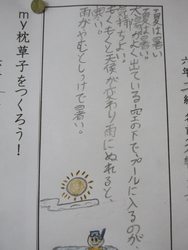 夏は暑い。
夏は暑い。
太陽がよく出ている空の下でプールに入るのが、
気持ちよい。
もくもくと天候がかわり雨にぬれると、
雨がやむとしっけで暑い。
my枕草子をつくろう！